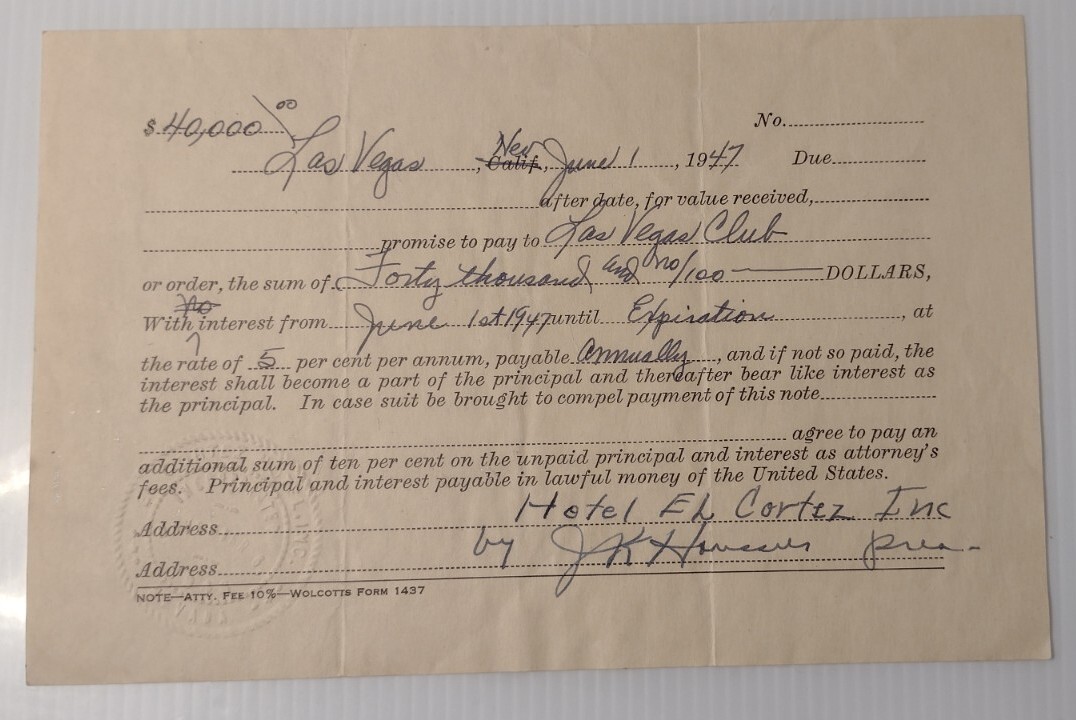 $ 40,000 00 No.
Las Vegas, Nev Calif., June 1, 1947 Due
after date, for value received,
promise to pay to Las Vegas Club
or order, the sum of Forty thousand and no/100 DOLLARS,
no
With interest from June 1st 1947 until Expiration, at
the rate of 5 per cent per annum, payable annually, and if not so paid, the
interest shall become a part of the principal and thereafter bear like interest as
the principal. In case suit be brought to compel payment of this note
agree to pay an
additional sum of ten per cent on the unpaid principal and interest as attorney's
fees. Principal and interest payable in lawful money of the United States.
Hotel El Cortez Inc
Address
by J K Houssels pres.
Address
NOTE—ATTY. FEE 10%—WOLCOTTS FORM 1437